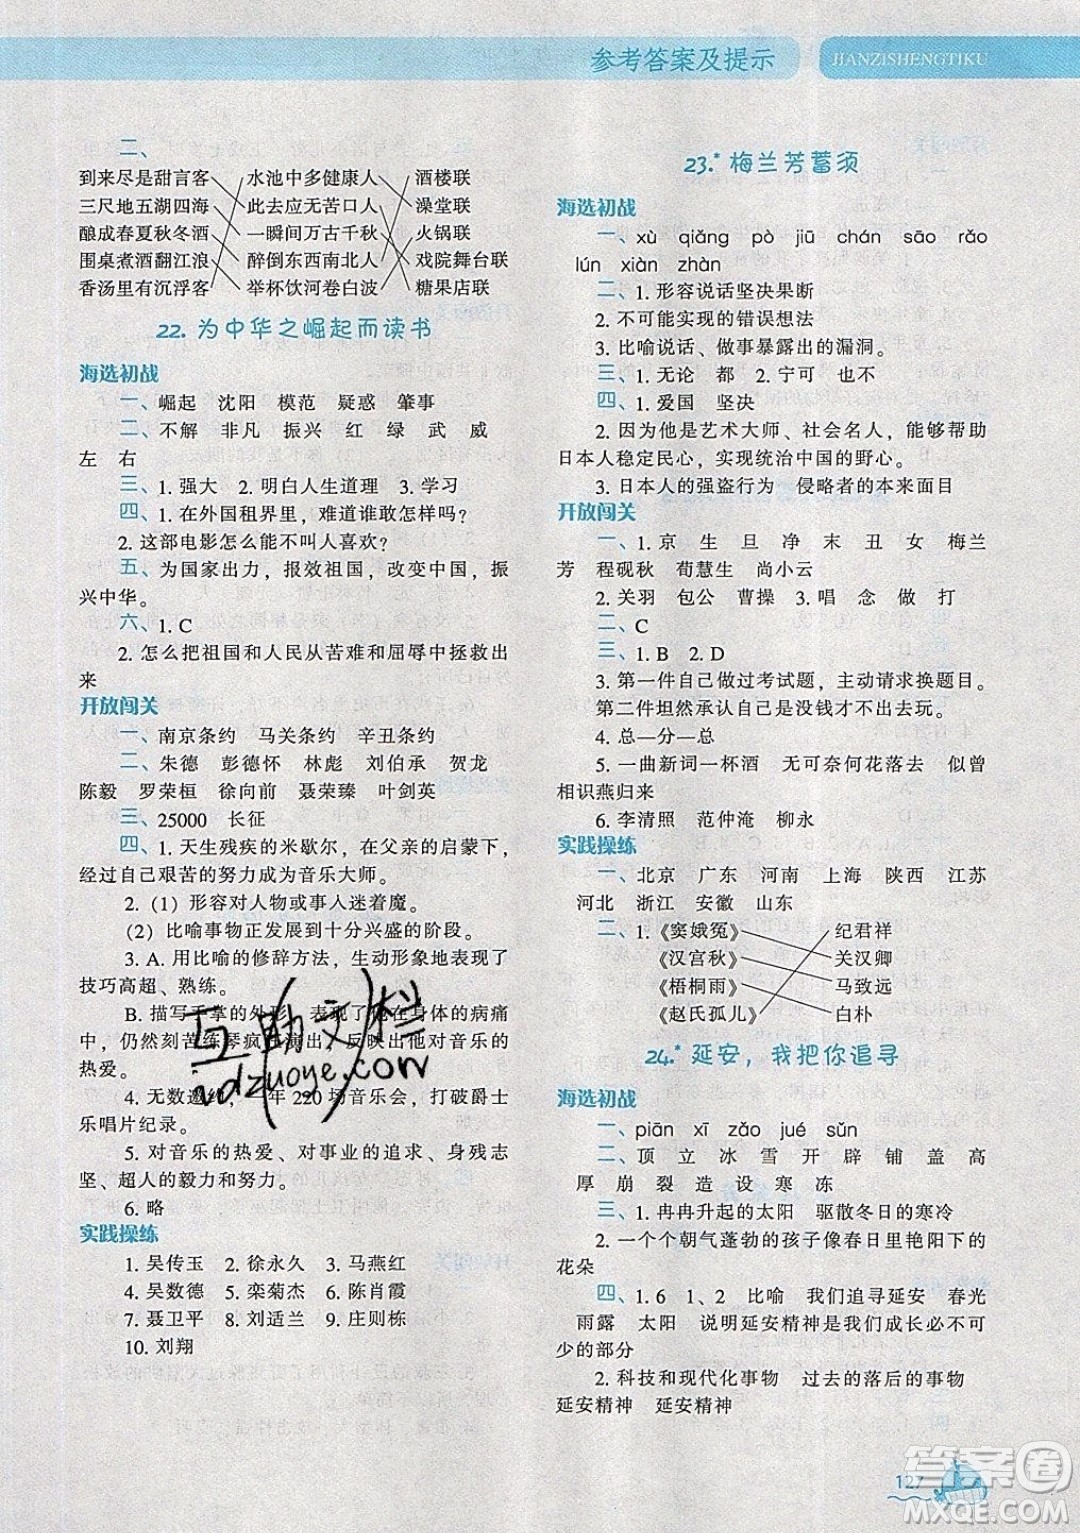 参考答案及提示
JIANZISHENGTIKU
二、
到来尽是甜言客 水池中多健康人 酒楼联
三尺地五湖四海 此去应无苦口人 澡堂联
酿成春夏秋冬酒 一瞬间万古千秋 火锅联
围桌煮酒翻江浪 醉倒东西南北人 戏院舞台联
香汤里有沉浮客 举杯饮河卷白波 糖果店联
22. 为中华之崛起而读书
海选初战
一、崛起 沈阳 模范 疑惑 肇事
二、不解 非凡 振兴 红 绿 武 威
左 右
三、1. 强大 2. 明白人生道理 3. 学习
四、1. 在外国租界里，难道谁敢怎样吗？
2. 这部电影怎么能不叫人喜欢？
五、为国家出力，报效祖国，改变中国，振
兴中华。
六、1. C
2. 怎么把祖国和人民从苦难和屈辱中拯救出
来
开放闯关
一、南京条约 马关条约 辛丑条约
二、朱德 彭德怀 林彪 刘伯承 贺龙
陈毅 罗荣桓 徐向前 聂荣臻 叶剑英
三、25000 长征
四、1. 天生残疾的米歇尔，在父亲的启蒙下，
经过自己艰苦的努力成为音乐大师。
2.（1）形容对人物或事入迷着魔。
（2）比喻事物正发展到十分兴盛的阶段。
3. A. 用比喻的修辞方法，生动形象地表现了
技巧高超、熟练。
B. 描写手掌的外形，表现了他在身体的病痛
中，仍然刻苦练琴疯狂演出，反映出他对音乐的
热爱。
4. 无数邀约，一年 220 场音乐会，打破爵士
乐唱片纪录。
5. 对音乐的热爱、对事业的追求、身残志
坚、超人的毅力和努力。
6. 略
实践操练
1. 吴传玉 2. 徐永久 3. 马燕红
4. 吴数德 5. 栾菊杰 6. 陈肖霞
7. 聂卫平 8. 刘适兰 9. 庄则栋
10. 刘翔
23.* 梅兰芳蓄须
海选初战
一、xù qiǎng pò jiū chán sāo rǎo
lún xiàn zhàn
二、1. 形容说话坚决果断
2. 不可能实现的错误想法
3. 比喻说话、做事暴露出的漏洞。
三、1. 无论 都 2. 宁可 也不
四、1. 爱国 坚决
2. 因为他是艺术大师、社会名人，能够帮助
日本人稳定民心，实现统治中国的野心。
3. 日本人的强盗行为 侵略者的本来面目
开放闯关
一、1. 京 生 旦 净 末 丑 女 梅兰
芳 程砚秋 荀慧生 尚小云
2. 关羽 包公 曹操 3. 唱 念 做 打
二、C
三、1. B 2. D
3. 第一件自己做过考试题，主动请求换题目。
第二件坦然承认自己是没钱才不出去玩。
4. 总—分—总
5. 一曲新词一杯酒 无可奈何花落去 似曾
相识燕归来
6. 李清照 范仲淹 柳永
实践操练
一、北京 广东 河南 上海 陕西 江苏
河北 浙江 安徽 山东
二、1.《窦娥冤》 纪君祥
《汉宫秋》 关汉卿
《梧桐雨》 马致远
《赵氏孤儿》 白朴
24.* 延安，我把你追寻
海选初战
一、piān xī zǎo jué sǔn
二、顶 立 冰 雪 开 辟 铺 盖 高
厚 崩 裂 造 设 寒 冻
三、1. 冉冉升起的太阳 驱散冬日的寒冷
2. 一个个朝气蓬勃的孩子像春日里艳阳下的
花朵
四、1. 6 1、2 比喻 我们追寻延安 春光
雨露 太阳 说明延安精神是我们成长必不可
少的部分
2. 科技和现代化事物 过去的落后的事物
延安精神 延安精神
127
互助文档
hdzuoye.com
答案圈
MXQE.COM